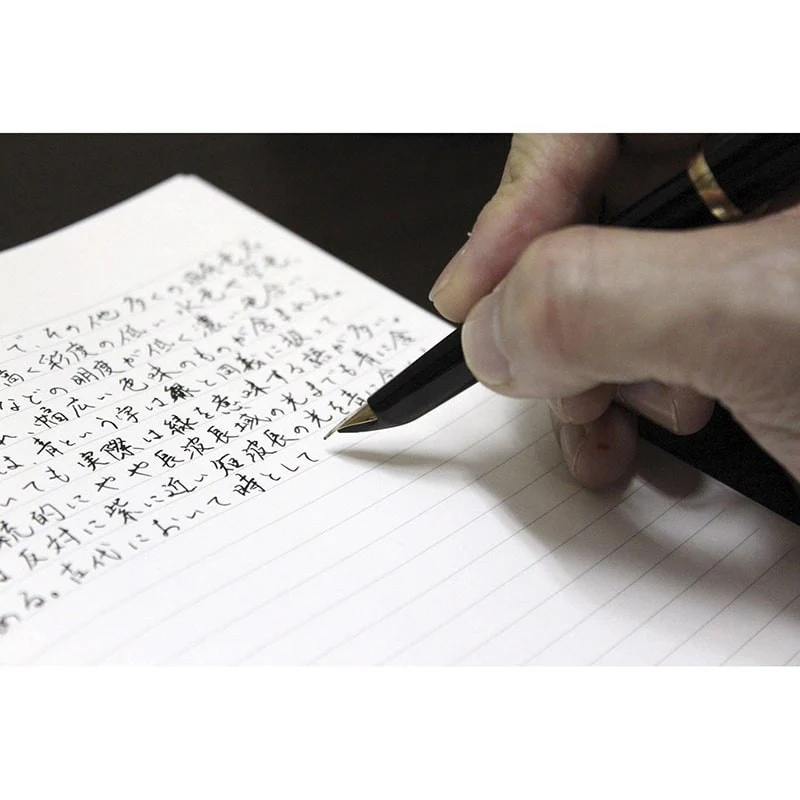 で、その他多くの
高く彩度の低い水色や空色
などの明度が低く濃い色合い
幅広い色味のものが含まれる。
は青という字は緑と同義に扱って
いても実際は緑を意味する語が多い。
統的にやや長波長域の光までも青に含
反対に紫に近い短波長の光を青に
める。古代において時として